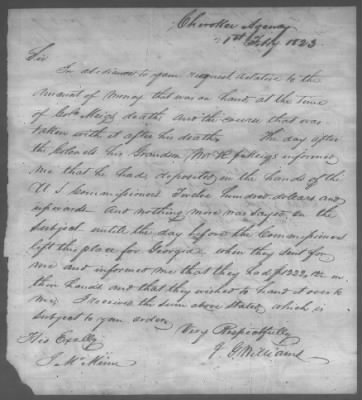 Cherokee Agency
1st Feby 1823
Sir
In obedience to your request relative to the
amount of money that was on hand, at the time
of Colo Meigs death, and the course that was
taken with it after his death. The day after
the Colonels his Grandson Mr R J Meigs informed
me that he had deposited in the hands of the
U S Commissioners Twelve hundred dollars and
upwards. And nothing more was sayed on the
subject untill the day before the Commissioners
left this place for Georgia when they sent for
me and informed me that they had $1222 in
their hands and that they wished to hand it over to
me. I received the sum above stated, which is
subject to your order.
Very Respectfully
J. G. Williams
His Excelly
J. McMinn